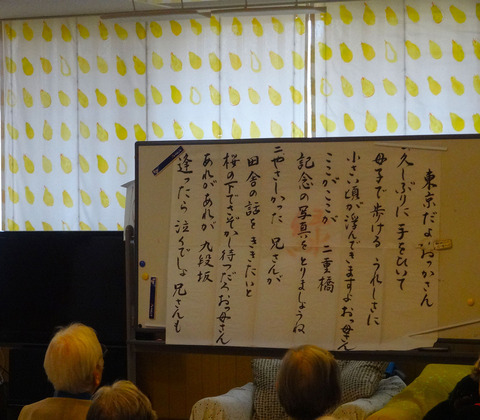 東京だよおっかさん
久しぶりに 手をひいて
母子で歩ける うれしさに
小さい頃が 浮んできますよ お母さん
ここがここが 二重橋
記念の写真を とりましょうね
二 やさしかった 兄さんが
田舎の話を ききたいと
桜の下で さぞかし待つだろ お母さん
あれがあれが 九段坂
逢ったら 泣くでしょ 兄さんも